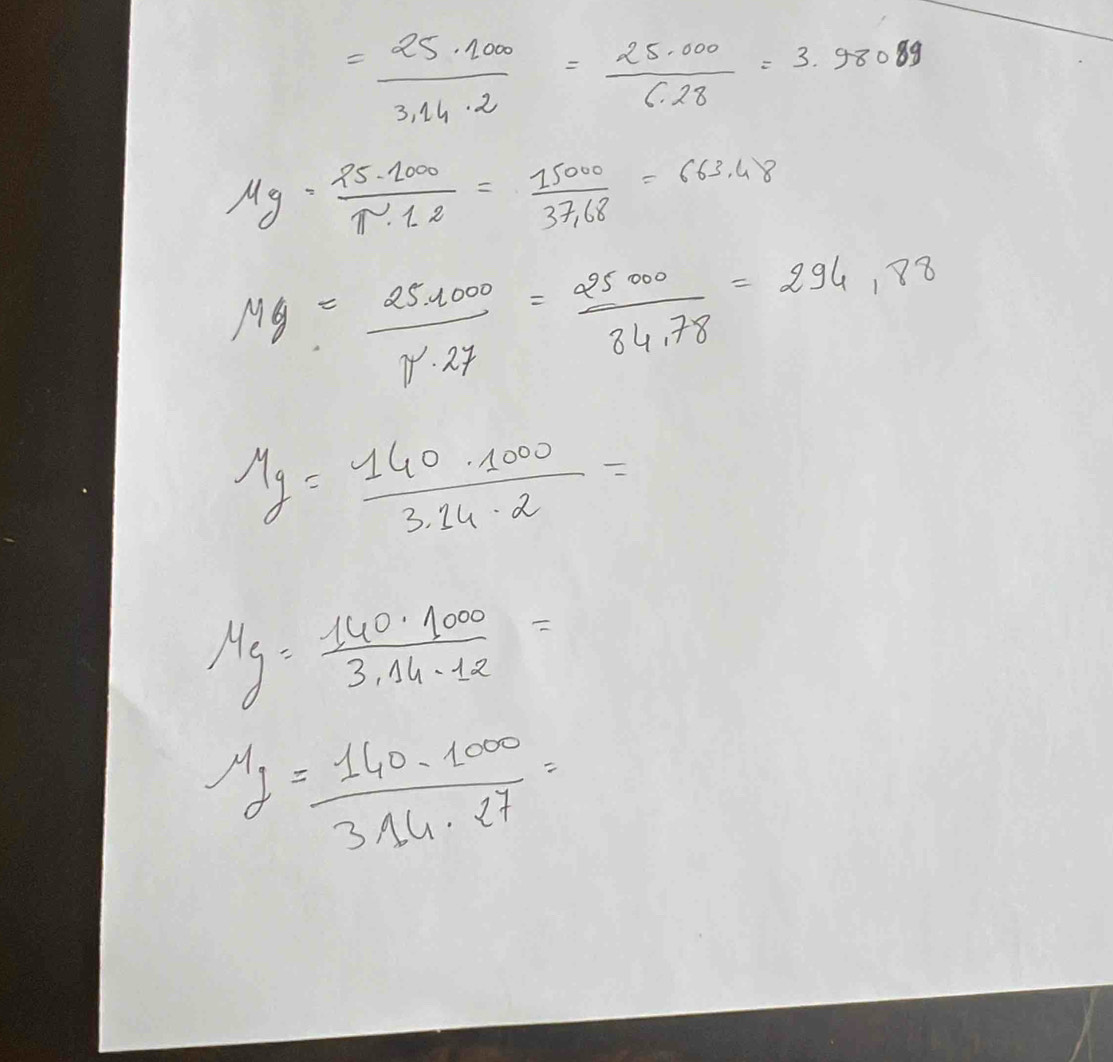 = 25 · 1000 / 3,14 · 2 = 25.000 / 6.28 = 3.98089
Mg = 25 · 1000 / π · 12 = 15000 / 37,68 = 663.48
Mg = 25.1000 / π · 27 = 25 000 / 84,78 = 294,88
Mg = 140 · 1000 / 3.14 · 2 =
Mg = 140 · 1000 / 3,14 · 12 =
Mg = 140 · 1000 / 3 14 · 27 =